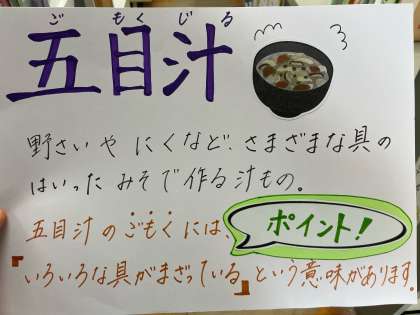 ごもくじる
五目汁
野さいや にくなど、さまざまな具の
はいった みそで作る汁もの。
五目汁のごもくには、
ポイント!
『いろいろな具がまざっている』という意味があります。